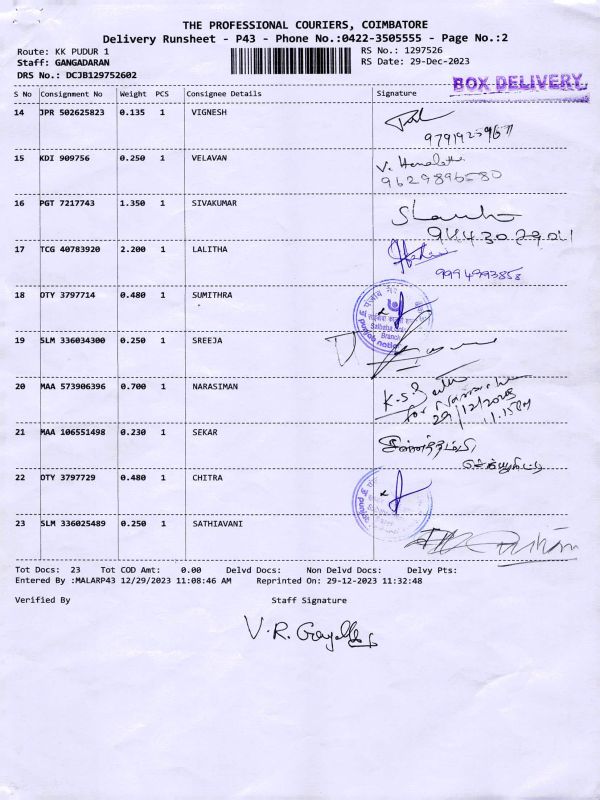 THE PROFESSIONAL COURIERS, COIMBATORE
Delivery Runsheet - P43 - Phone No.:0422-3505555 - Page No.:2
Route: KK PUDUR 1 RS No.: 1297526
Staff: GANGADARAN RS Date: 29-Dec-2023
DRS No.: DCJB129752602
BOX DELIVERY
S No Consignment No Weight PCS Consignee Details Signature
14 JPR 502625823 0.135 1 VIGNESH
15 KDI 909756 0.250 1 VELAVAN
V.
9629896580
16 PGT 7217743 1.350 1 SIVAKUMAR
17 TCG 40783920 2.200 1 LALITHA
9994993858
18 OTY 3797714 0.480 1 SUMITHRA
19 SLM 336034300 0.250 1 SREEJA
20 MAA 573906396 0.700 1 NARASIMAN
K.S.
for
29/12/2023
11.15
21 MAA 106551498 0.230 1 SEKAR
22 OTY 3797729 0.480 1 CHITRA
23 SLM 336025489 0.250 1 SATHIAVANI
Tot Docs: 23 Tot COD Amt: 0.00 Delvd Docs: Non Delvd Docs: Delvy Pts:
Entered By :MALARP43 12/29/2023 11:08:46 AM Reprinted On: 29-12-2023 11:32:48
Verified By Staff Signature
V.R.